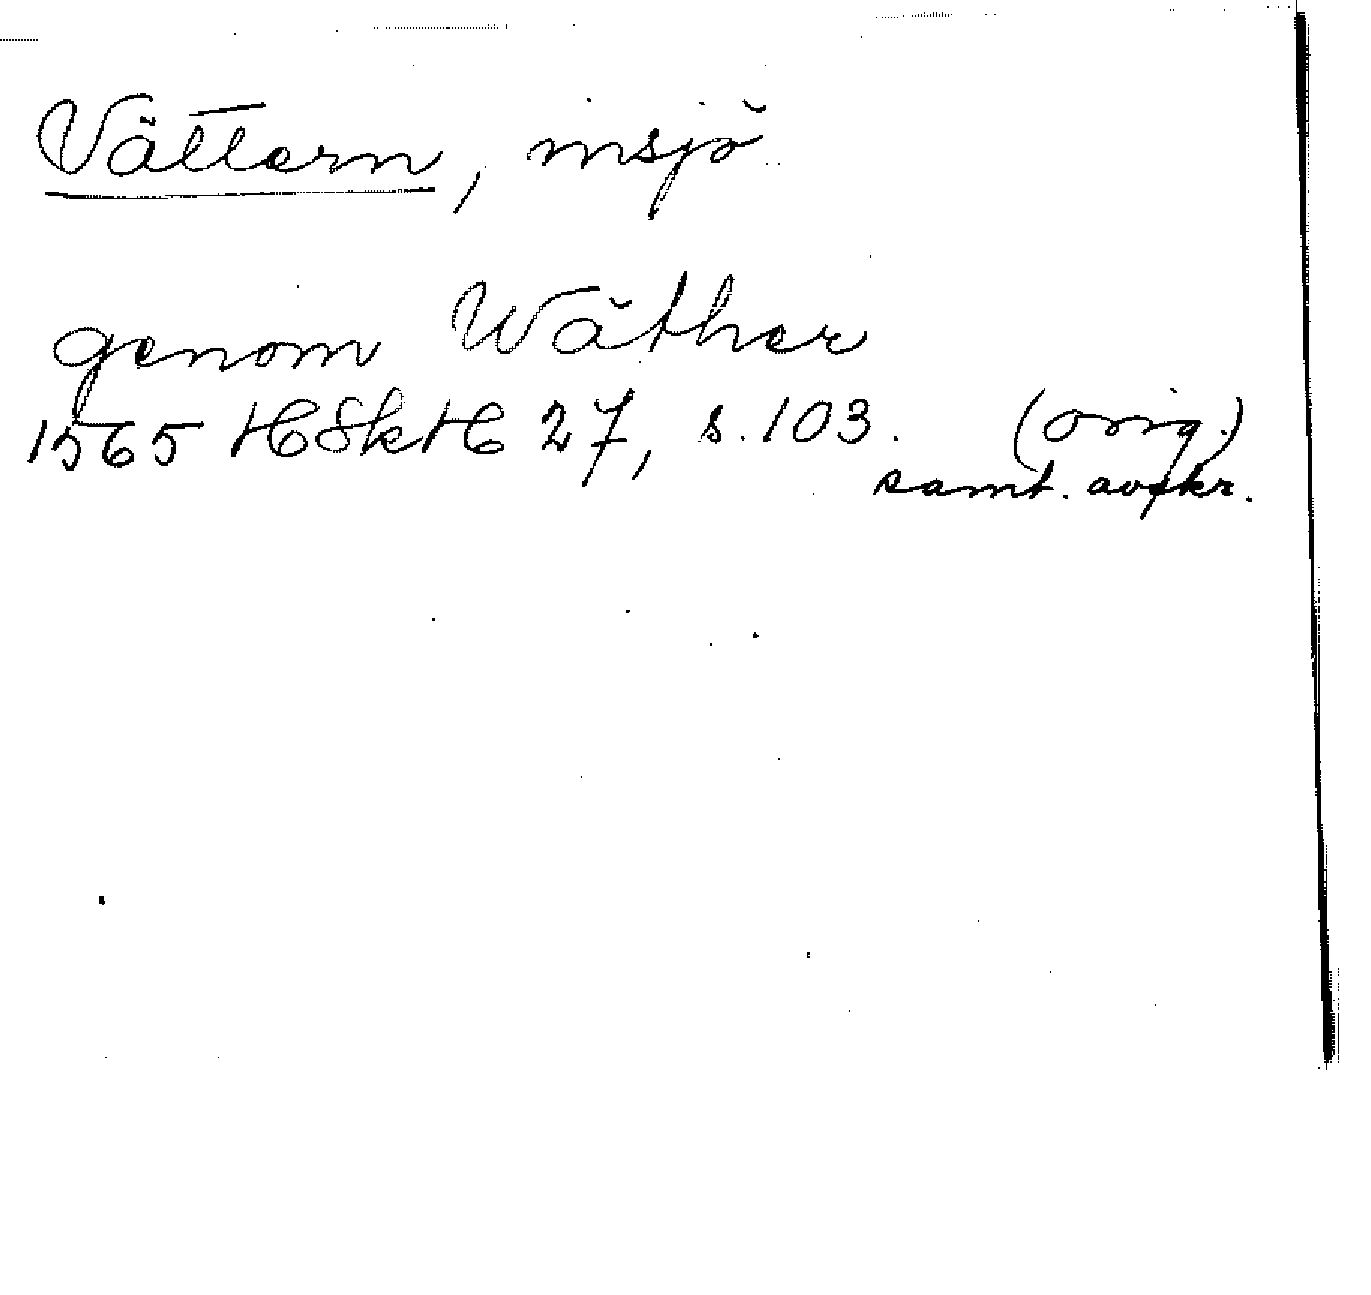 Vättern, insjö
genom Wäther
1565 HSkH 27, s. 103. (orig.)
samt. avskr.